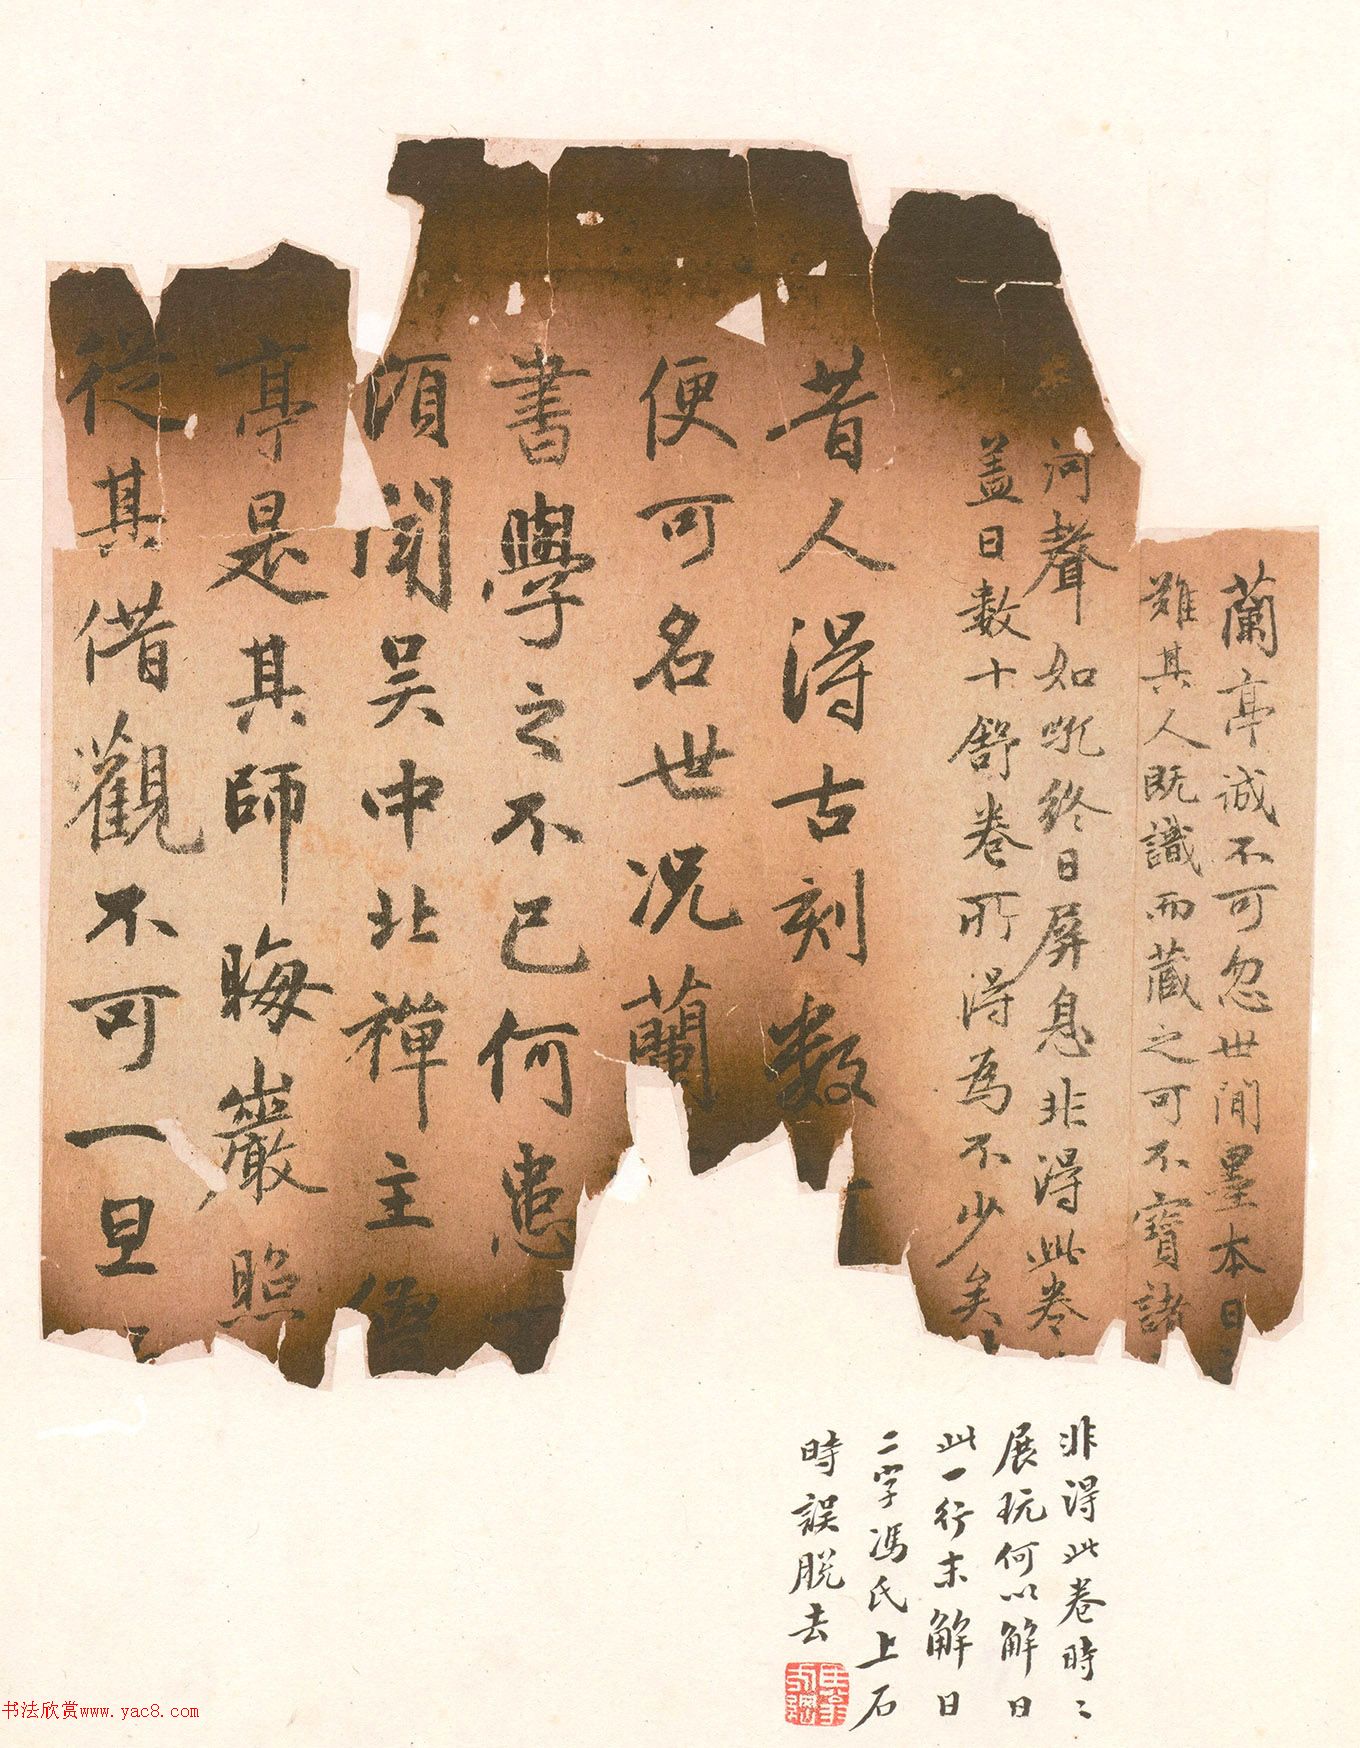 蘭亭誠不可忽世間墨本日
難其人既識而藏之可不寶諸
河聲如吼終日屏息非得此卷
盖日數十舒卷所得為不少矣
昔人得古刻数
便可名世况蘭
書學之不已何患
頃聞吴中北禪主僧
亭是其師晦巖照
從其借觀不可一旦
非得此卷時〻
展玩何以解日
此一行末解日
二字馮氏上石
時誤脱去
书法欣赏www.yac8.com